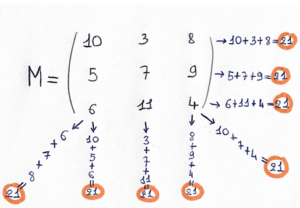 M = ( 10 3 8 ) → 10+3+8=21
5 7 9 → 5+7+9=21
6 11 4 → 6+11+4=21
8+7+6=21
10+5+6=21
3+7+11=21
8+9+4=21
10+7+4=21